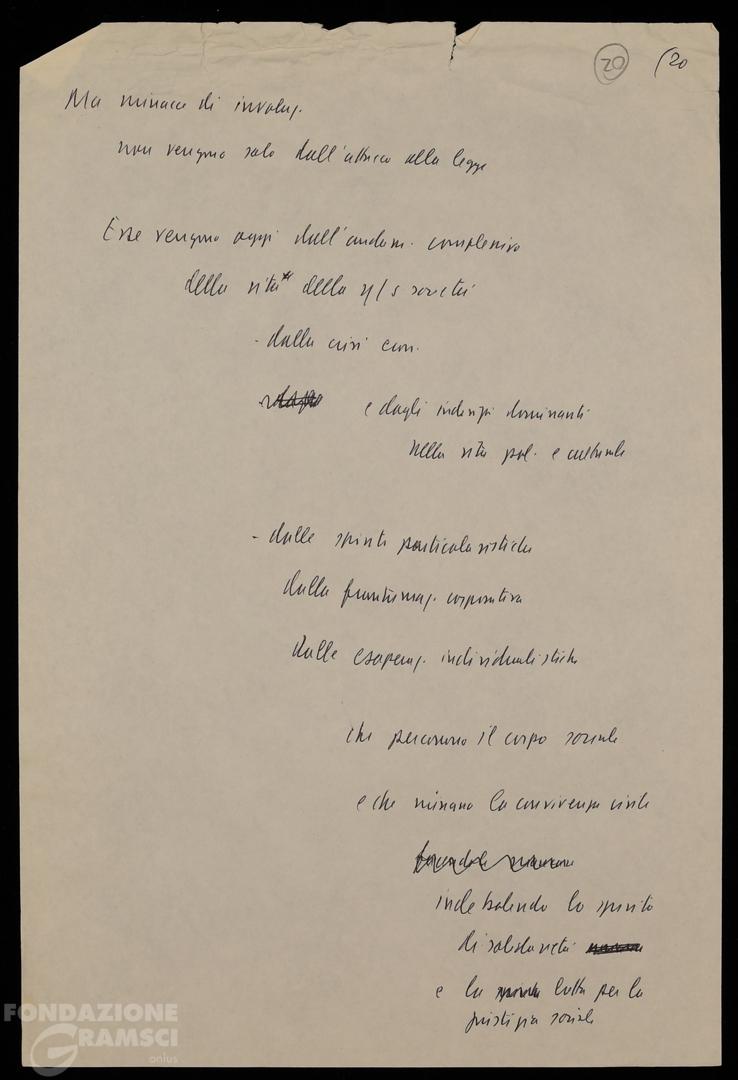 20 (20
Ma minacce di involuz.
non vengono solo dall'attacco alla legge
Esse vengono oggi dall'andam. complessivo
della vita della n/s società
- dalla crisi econ.
e dagli indirizzi dominanti
nella vita pol. e culturale
- dalle spinte particolaristiche
dalla frantumaz. corporativa
dalle esasperaz. individualistiche
che percorrono il corpo sociale
e che minano la convivenza civile
indebolendo lo spirito
di solidarietà
e la lotta per la
giustizia sociale
FONDAZIONE
GRAMSCI
onlus